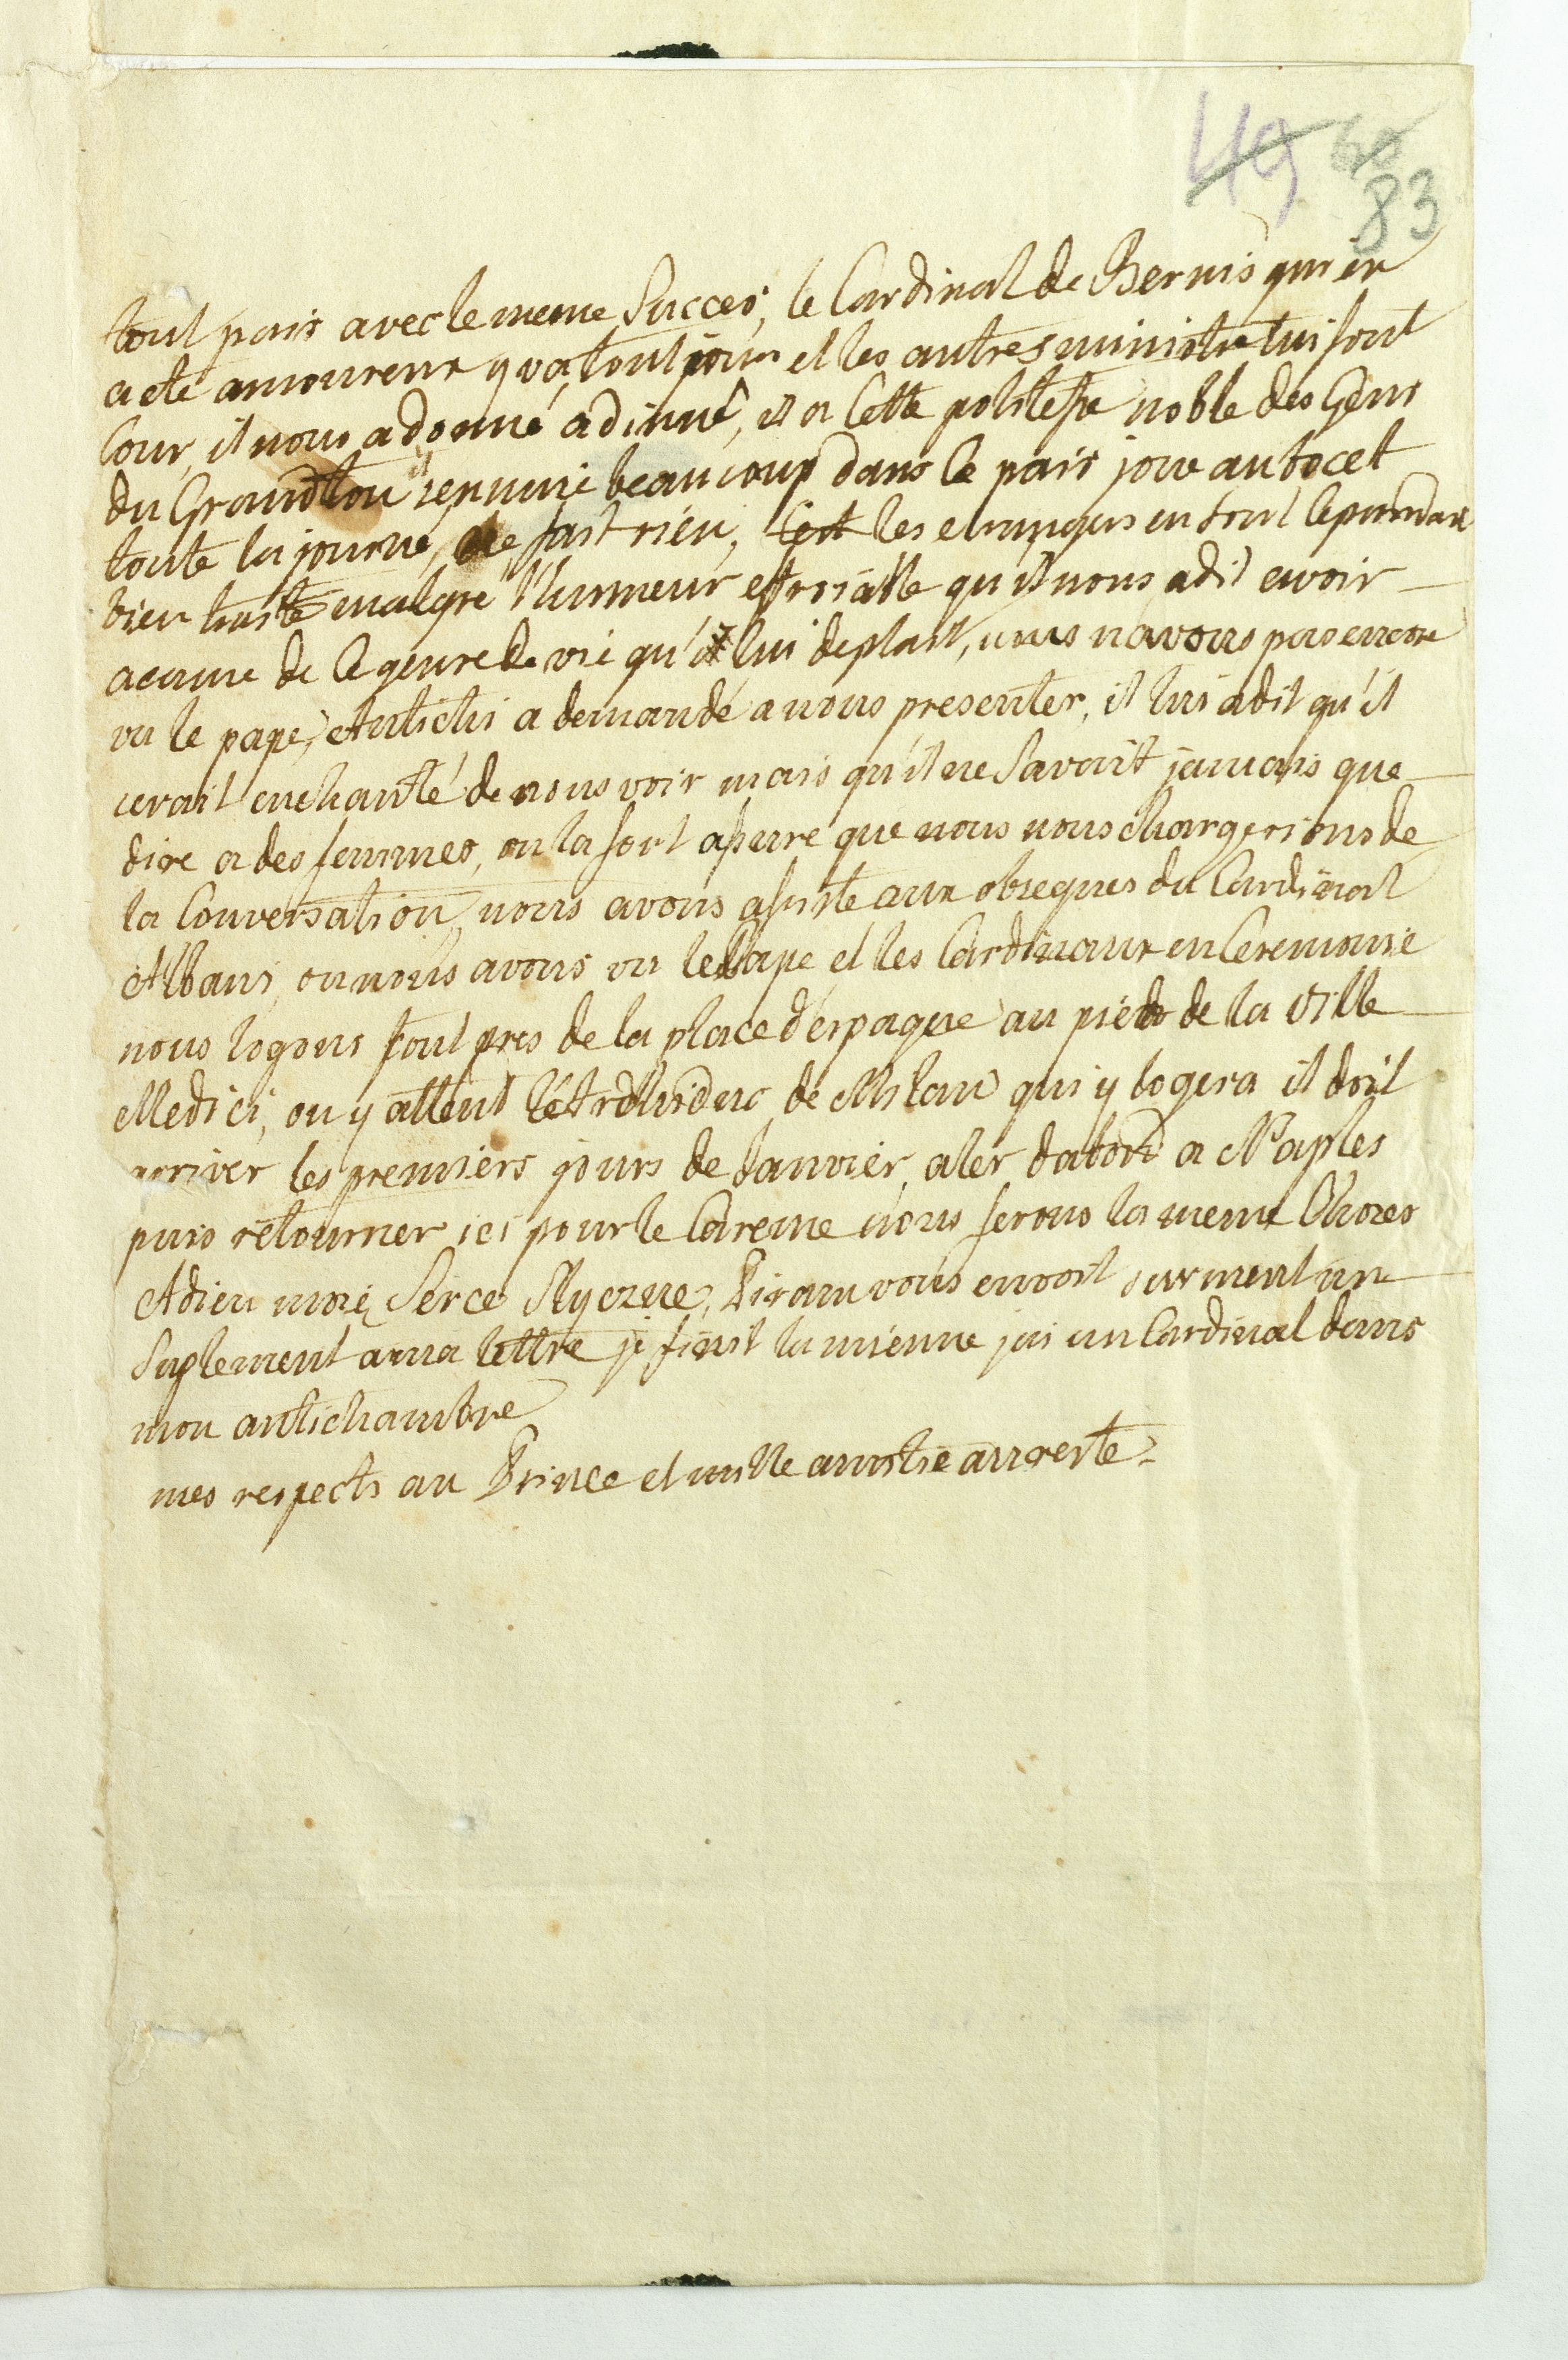 49 60
83
tout pais avec le meme Succes, le Cardinal de Bernis qui en
a eté amoureux y va tout jour et les autres ministre lui font
Cour, il nous a donné a dinné, il a Cette politesse noble des Gens
du Grand ton il senuie beaucoup dans le pais joue au tocet
toute la journé, ne fait rien, C'est les etrangers en sont cependant
bien traité malgré l'humeur effroiable qu il nous a dit avoir
acause de ce genre de vie qu'il lui deplait, nous n'avons pas encore
vu le pape, Antichi a demandé a nous presenter, il lui a dit qu'il
cerait enchanté de nous voir mais qu'il ne Savait jamais que
dire a des femmes, on la fort assuré que nous nous chargerions de
la Conversation, nous avons assisté aux obseques du Cardinal
Albani, ou nous avons vu le Pape et les Cardinaux en Ceremonie
nous logons tout pres de la place d'espagne au pied de la Ville
Medici, on y attent l'Archiduc de Milan qui y logera il doit
arriver les premiers jours de Janvier, aler dabord a Naples
puis retourner ici pour le Careme nous ferons la meme Chozes
Adieu moię Serce Slyczne, Piram vous envoit surment un
Suplement a ma lettre je finit la mienne jai un Cardinal dans
mon antichambre
mes respects au Prince et mille amitié au reste